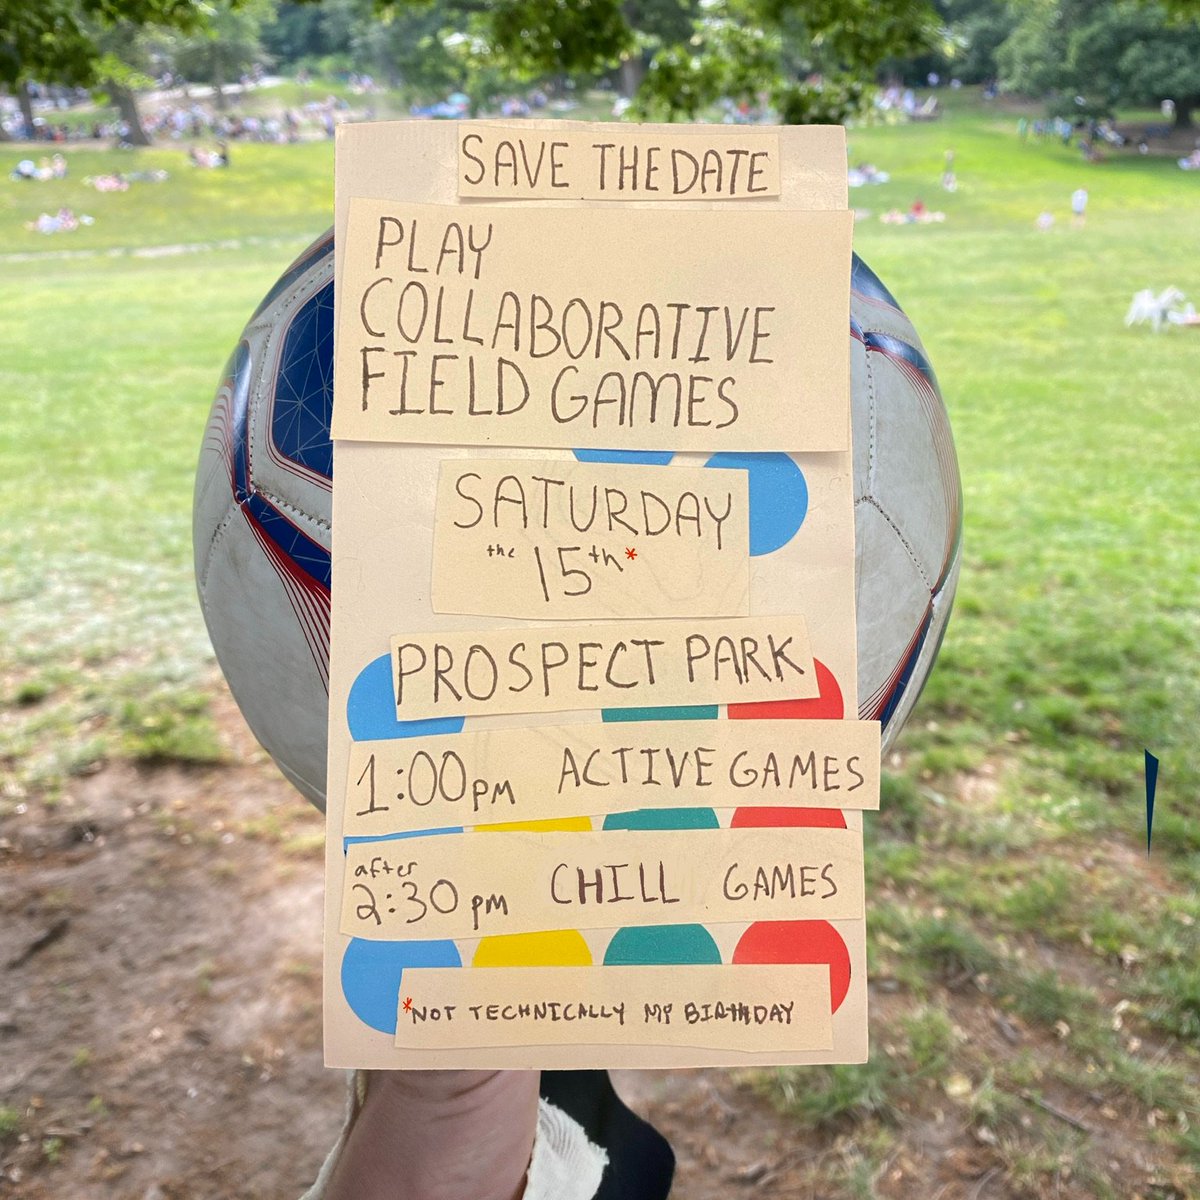 SAVE THE DATE
PLAY
COLLABORATIVE
FIELD GAMES
SATURDAY
the 15th*
PROSPECT PARK
1:00pm ACTIVE GAMES
after
2:30pm CHILL GAMES
*NOT TECHNICALLY MY BIRTHDAY